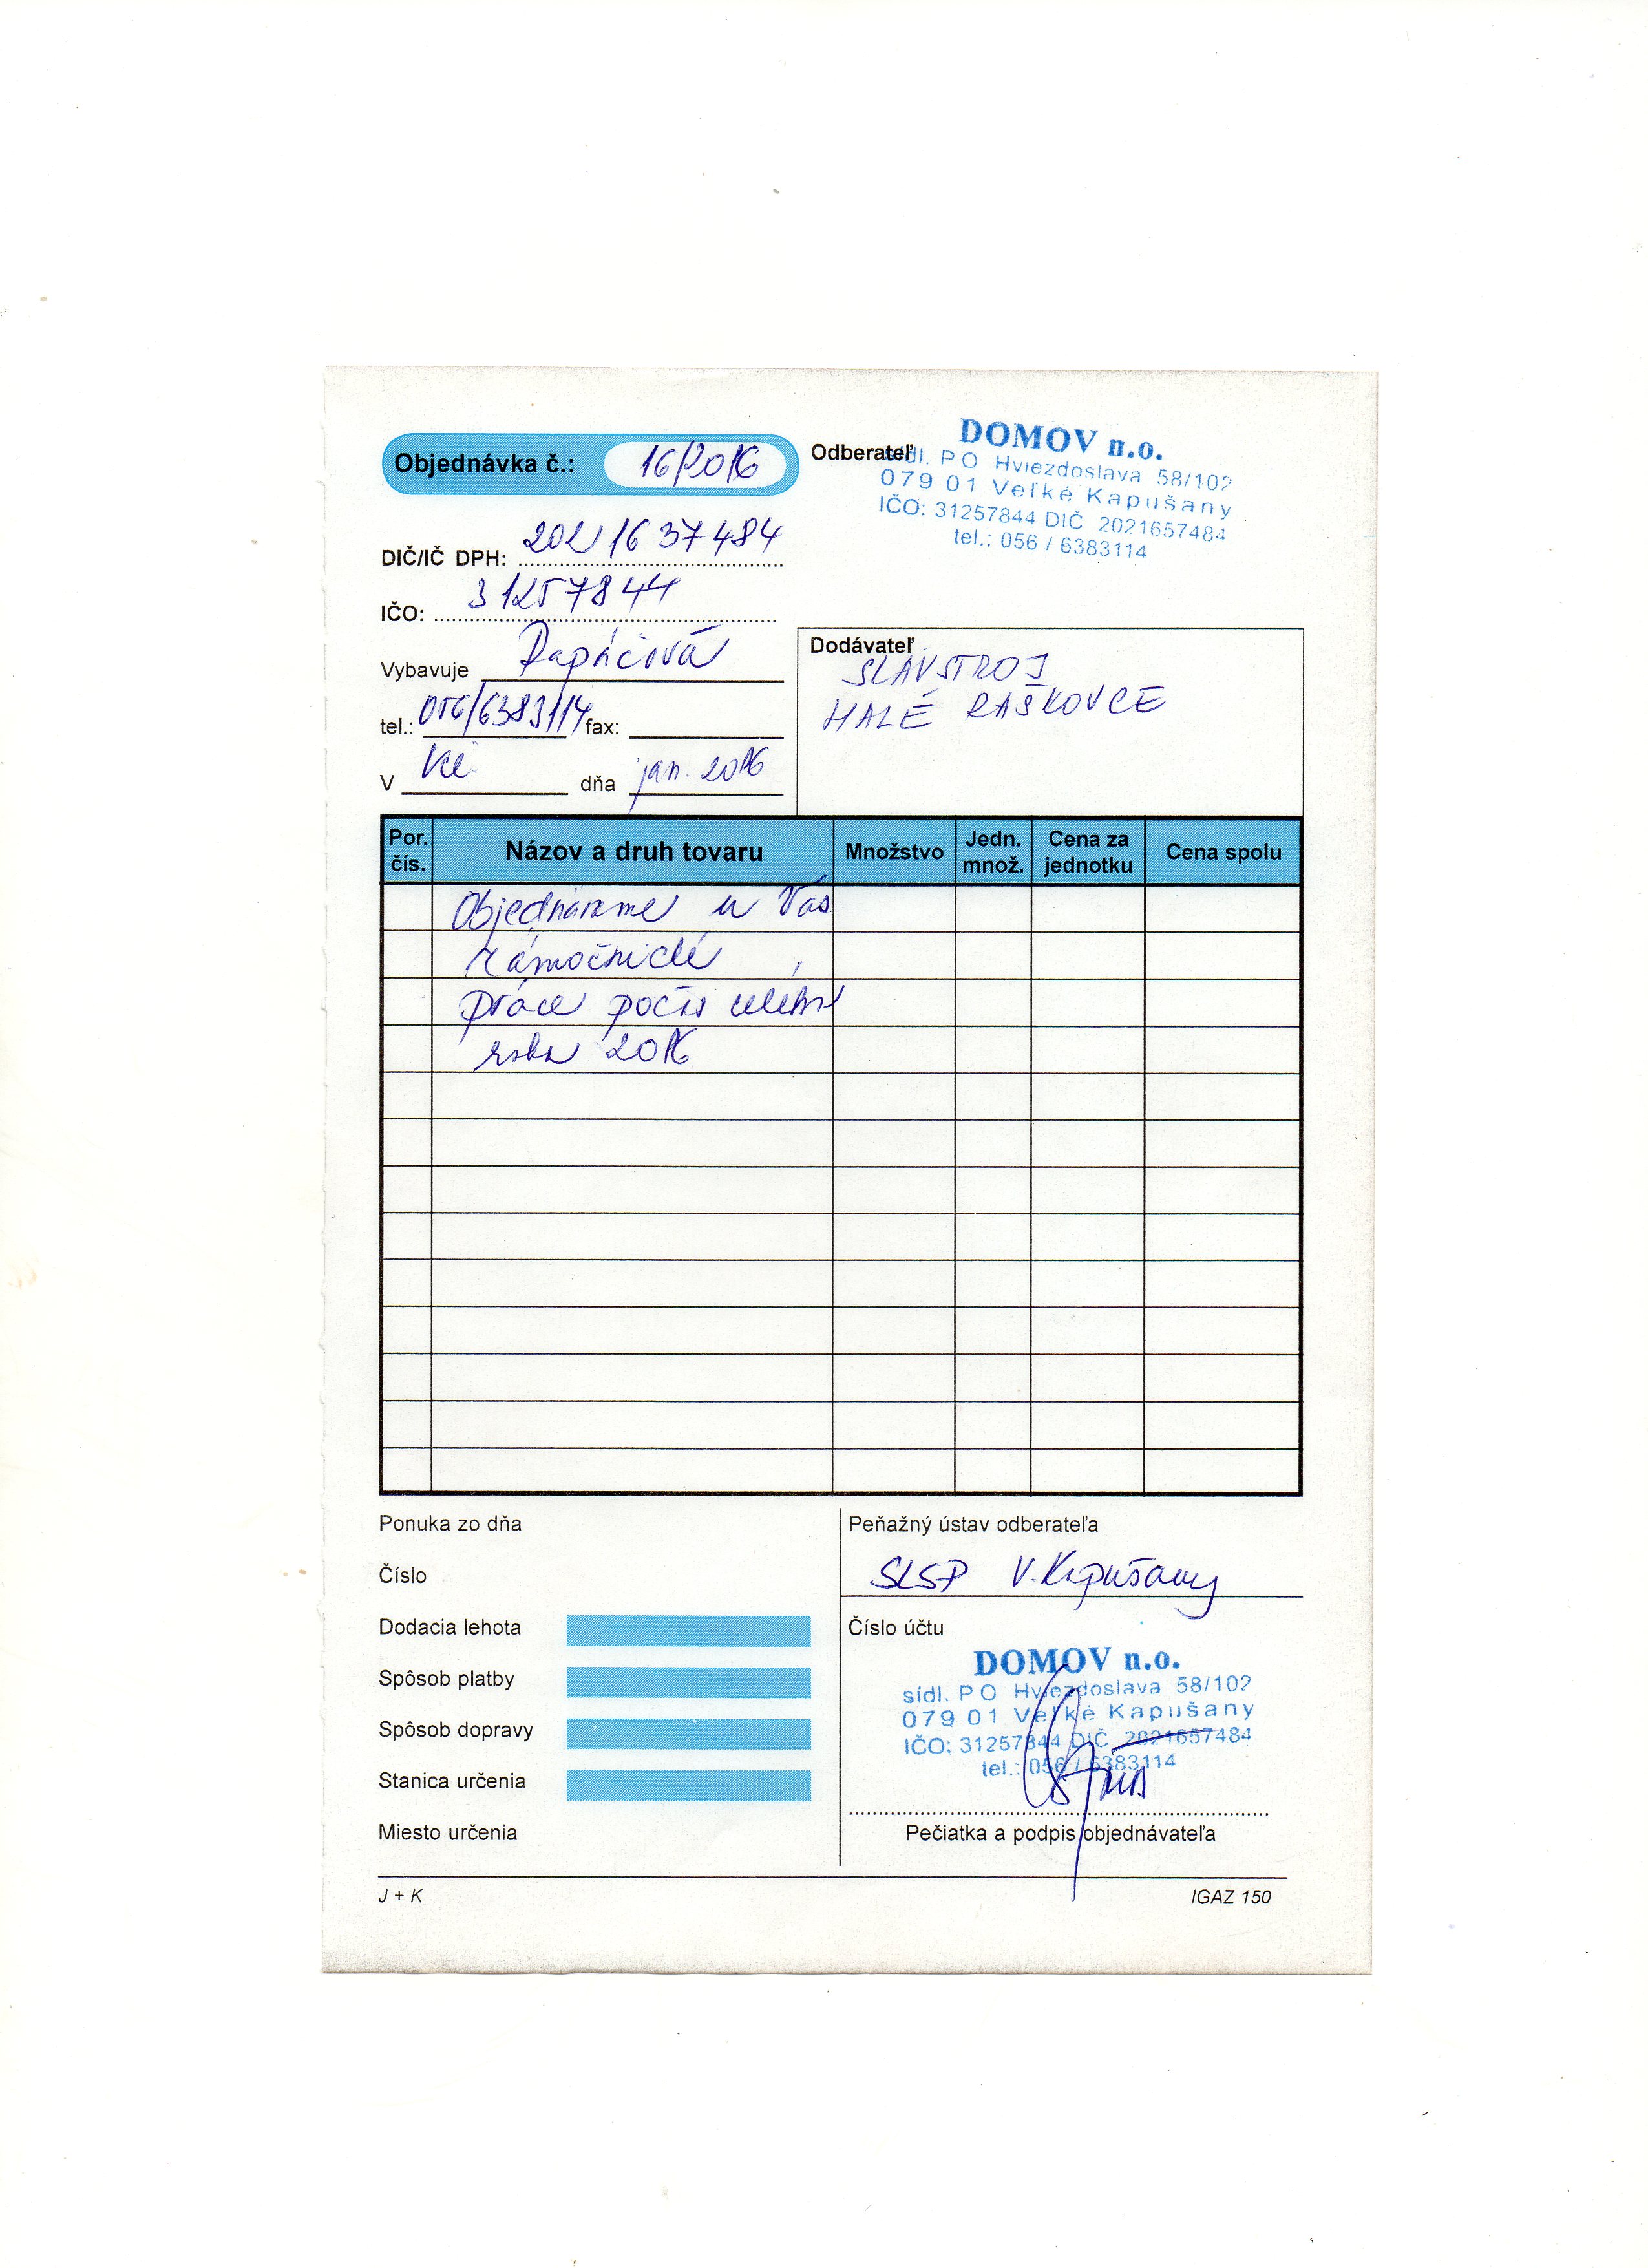 Objednávka č.: 16/2016
Odberateľ
DOMOV n.o.
sídl. PO Hviezdoslava 58/102
079 01 Veľké Kapušany
IČO: 31257844 DIČ 2021657484
tel.: 056 / 6383114
DIČ/IČ DPH: 2021637484
IČO: 31257844
Vybavuje
tel.: 056/6383114 fax:
V VK dňa jan. 2016
Dodávateľ
SLAVSTROJ
MALÉ RAŠKOVCE
Por. čís. Názov a druh tovaru Množstvo Jedn. množ. Cena za jednotku Cena spolu
Objednávame u Vás
zámočnické
práce počas celého
roka 2016
Ponuka zo dňa
Číslo
Dodacia lehota
Spôsob platby
Spôsob dopravy
Stanica určenia
Miesto určenia
Peňažný ústav odberateľa
SLSP V. Kapušany
Číslo účtu
DOMOV n.o.
sídl. PO Hviezdoslava 58/102
079 01 Veľké Kapušany
IČO: 31257844 DIČ 2021657484
tel.: 056 / 6383114
Pečiatka a podpis objednávateľa
J + K
IGAZ 150